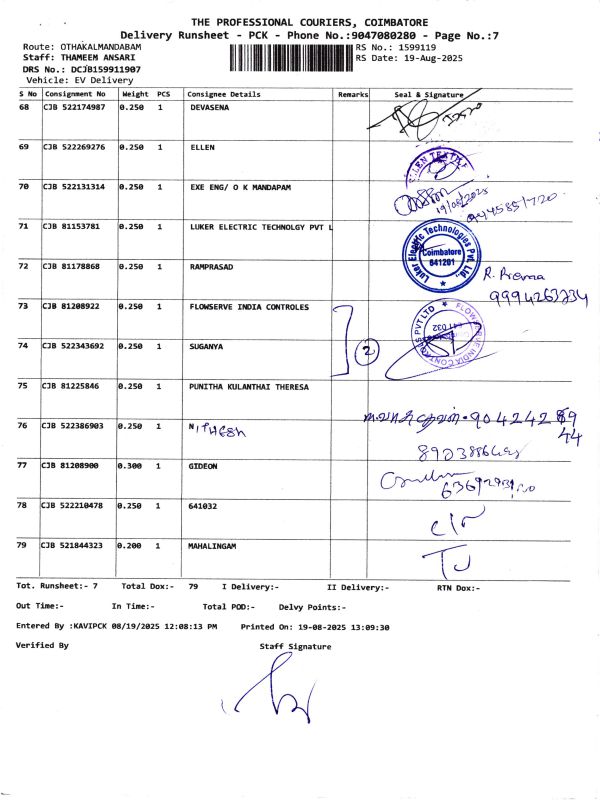 THE PROFESSIONAL COURIERS, COIMBATORE
Delivery Runsheet - PCK - Phone No.:9047080280 - Page No.:7
Route: OTHAKALMANDABAM RS No.: 1599119
Staff: THAMEEM ANSARI RS Date: 19-Aug-2025
DRS No.: DCJB159911907
Vehicle: EV Delivery
S No Consignment No Weight PCS Consignee Details Remarks Seal & Signature
68 CJB 522174987 0.250 1 DEVASENA
69 CJB 522269276 0.250 1 ELLEN
ELLEN TEXTILE
70 CJB 522131314 0.250 1 EXE ENG/ O K MANDAPAM
19/08/2025
71 CJB 81153781 0.250 1 LUKER ELECTRIC TECHNOLGY PVT L
Luker Electric Technologies Pvt Ltd.,
Coimbatore
641201
72 CJB 81178868 0.250 1 RAMPRASAD
R. Prema
9994263234
73 CJB 81208922 0.250 1 FLOWSERVE INDIA CONTROLES
FLOWSERVE INDIA CONTROLS PVT LTD
641 032
74 CJB 522343692 0.250 1 SUGANYA
2
75 CJB 81225846 0.250 1 PUNITHA KULANTHAI THERESA
76 CJB 522386903 0.250 1 NITHESH
77 CJB 81208900 0.300 1 GIDEON
78 CJB 522210478 0.250 1 641032
79 CJB 521844323 0.200 1 MAHALINGAM
Tot. Runsheet:- 7 Total Dox:- 79 I Delivery:- II Delivery:- RTN Dox:-
Out Time:- In Time:- Total POD:- Delvy Points:-
Entered By :KAVIPCK 08/19/2025 12:08:13 PM Printed On: 19-08-2025 13:09:30
Verified By Staff Signature